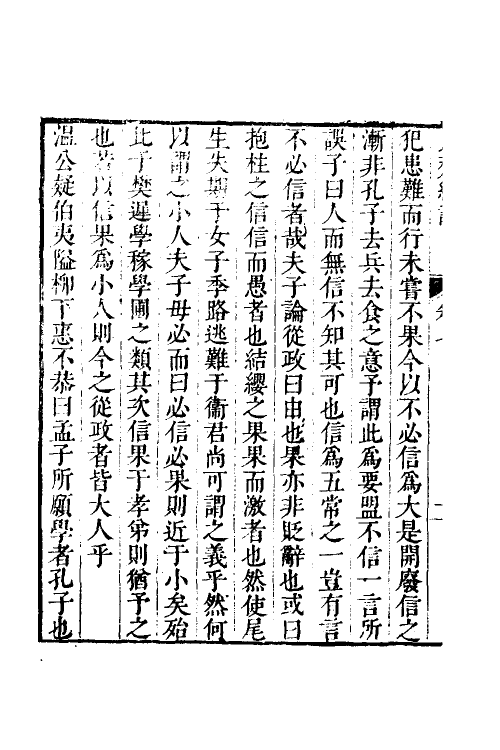 犯患難而行未嘗不果今以不必信為大是開廢信之
漸非孔子去兵去食之意予謂此為要盟不信一言所
誤子曰人而無信不知其可也信為五常之一豈有言
不必信者哉夫子論從政曰由也果亦非貶辭也或曰
抱柱之信信而愚者也結纓之果果而激者也然使尾
生失期于女子季路逃難于衞君尚可謂之義乎然何
以謂之小人夫子毋必而曰必信必果則近于小矣殆
此于樊遲學稼學圃之類其次信果于孝弟則猶予之
也若以信果為小人則今之從政者皆大人乎
溫公疑伯夷隘柳下惠不恭曰孟子所願學者孔子也